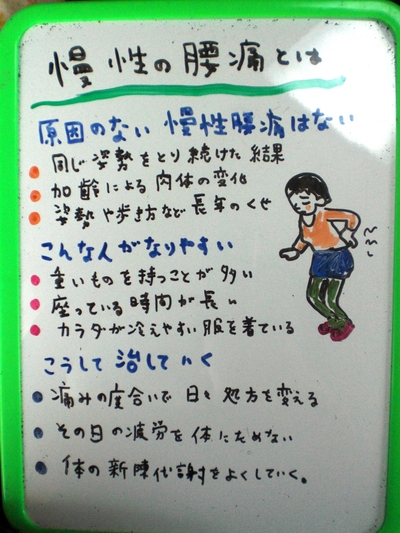 慢性の腰痛とは
原因のない慢性腰痛はない
同じ姿勢をとり続けた結果
加齢による肉体の変化
姿勢や歩き方など長年のくせ
こんな人がなりやすい
重いものを持つことが多い
座っている時間が長い
カラダが冷えやすい服を着ている
こうして治していく
痛みの度合いで日々処方を変える
その日の疲労を体にためない
体の新陳代謝をよくしていく。